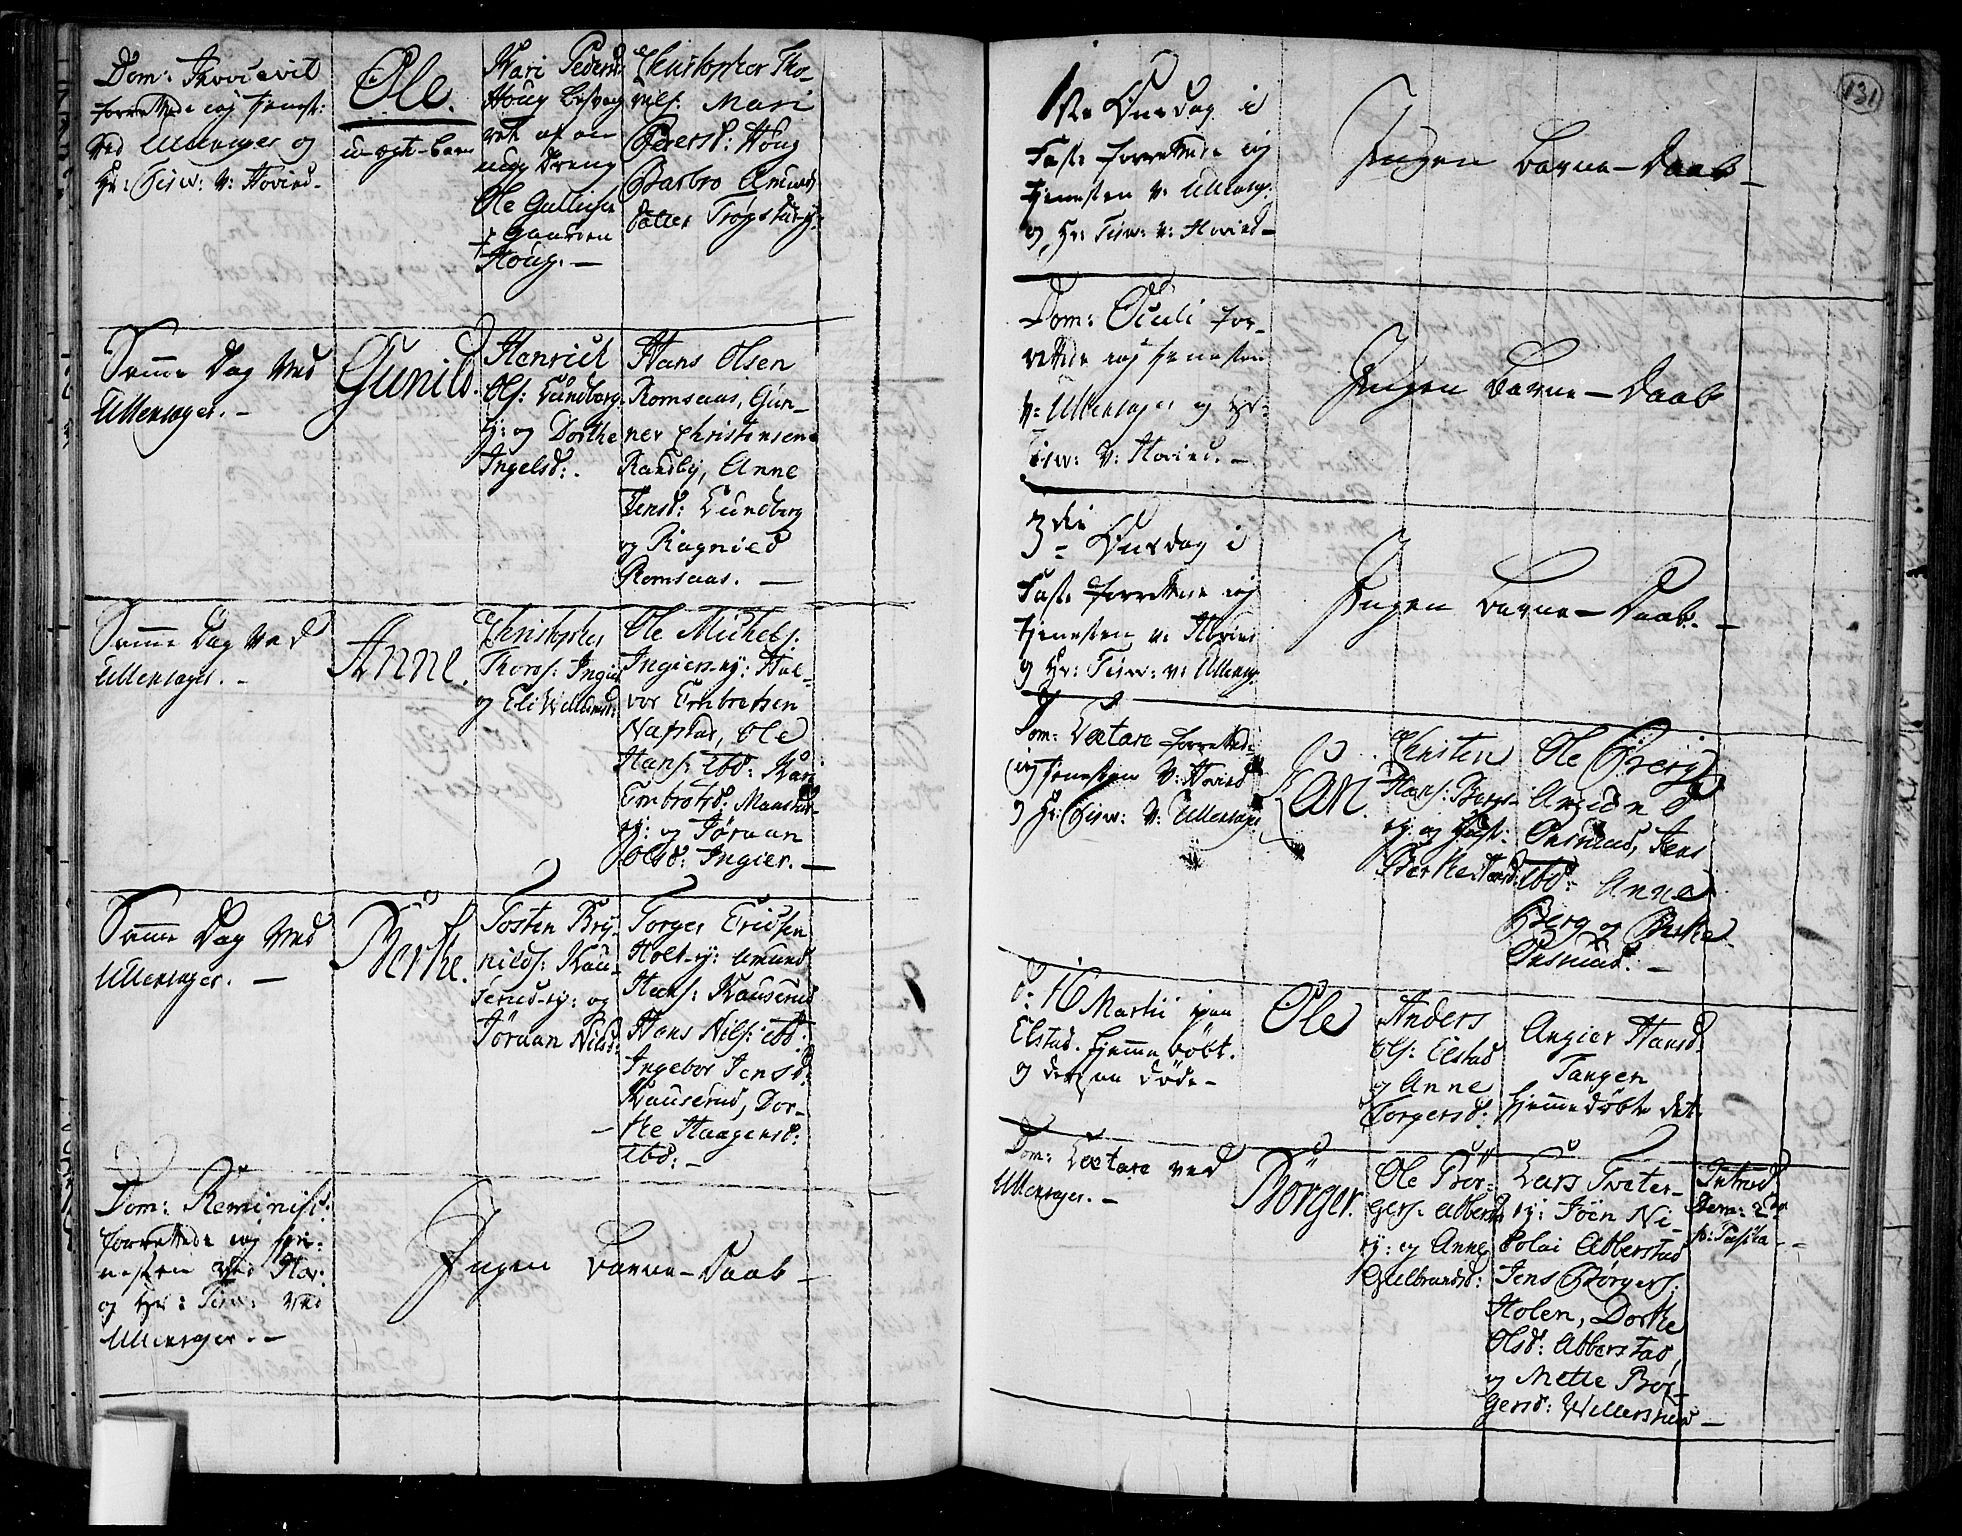 Dom: Invocavit
forrettede iej tjenest:
ved Ullensager og
Hr: Tisw: v: Hovind.
Ole.
u-ægte-barn
Kari Pedersd
Houg besvang
ret af en
ung Dreng
Ole Gullichs
p gaarden
Houg. —
Christopher Tho-
Mari
Pedersd: Houg
Barbro Amunds
datter Trøgstad ej:
Samme Dag ved
Ullensager. —
Gunild.
Henrich
Ols: Lundberg
ej: og Dorthe
Ingelsd:
Hans Olsen
Romsaas, Gun-
ner Christensen
Randby, Anne
Jensd: Lundberg
og Ragnied
Romsaas. —
Samme Dag ved
Ullensager. -
Anne.
Christopher
Thors: Ingier
og Eli Willumsd:
Ole Michels:
Ingier-ej: Hal-
vor Embretsen
Napstad, Ole
Hans: ibd: Kari
Embretsd: Manstad-
ej: og Jøraan
Olsd: Ingier. —
Samme Dag ved
Ullensager. —
Berthe.
Tosten Bry-
nilds: Kau-
serud-ej: og
Jøraan Nilsd:
Torger Ericsen
Holt-ej: Amund
Hans: Kauserud
Hans Nils: ibd:
Ingebor Jensd:
Kauserud, Dor-
the Haagensd:
ibd: —
Dom: Reminisc:
forrettede iej tje-
nesten ved Hov:
og Hr: Tisw: ved
Ullensager. —
Ingen Barne-Daab —
131
1ste Onsdag i
Fast: forrettede iej
tjenesten v: Ullensag:
og Hr: Tisw: v: Hovind —
Ingen Barne-Daab —
Dom: Oculi for-
rettede iej tjenesten
v: Ullensager og Hr:
Tisw: v: Hovind. —
Ingen Barne-Daab
3die Onsdag i
Fast: forrettede iej
tjenesten v: Hovind
og Hr: Tisw: v: Ullensag:
Ingen Barne-Daab. —
Dom: Lætare forrettede
iej tjenesten v: Hovind
og Hr: Tisw: v: Ullensager
Jan.
Christen
Hans: Berg-
ej: og Hust:
Berthe Hansd:
Ole Berg
Amund
Onsrud, Jens
ibd: Anne
Berg og Berthe
Onsrud: —
d: 16 Martii paa
Elstad. hjemmedøbt.
og derpaa døde —
Ole
Anders
Ols: Elstad
og Anne
Torgersd:
Angier Hansd.
Tangen
hjemmedøbte det
Dom: Lætare ved
Ullensager. —
Börger.
Ole Bör-
gers. Abberstad
ej: og Anne
Gulbrandsd:
Lars Tveter-
ej: Joen Ni-
colai Abberstad
Jens Børgers:
Holen, Dorthe
Olsd: Abberstad,
og Mette Bör-
gersd: Willersrud —
Introd
Dom: 2da
p: Pascha —